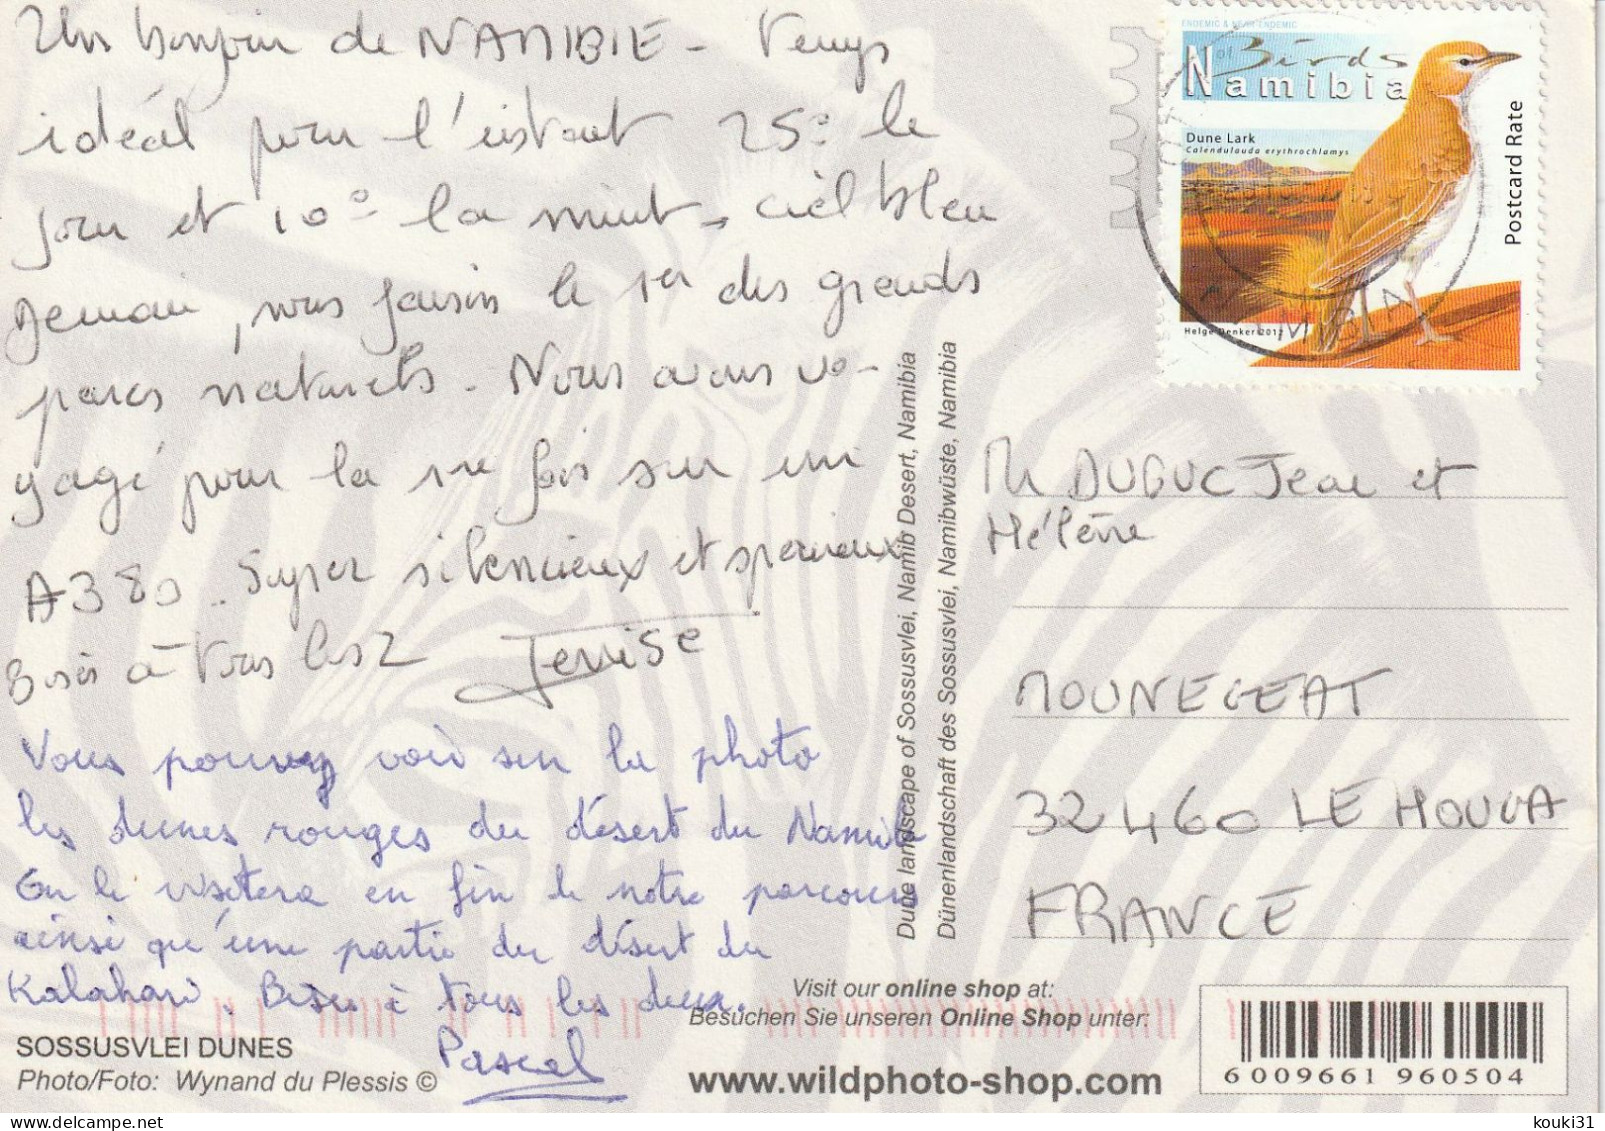 Un bonjour de NAMIBIE - Temps
idéal pour l'instant 25° le
jour et 10° la nuit, ciel bleu
Demain, nous faisons le 1er des grands
parcs naturels. Nous avons vo-
yagé pour la 1re fois sur un
A380.. Super silencieux et spacieux
Bises à tous les 2 Denise
Vous pouvez voir sur la photo
les dunes rouges du désert du Namib
On le visitera en fin de notre parcours
ainsi qu'une partie du désert du
Kalahari. Bises à tous les deux.
Pascal
SOSSUSVLEI DUNES
Photo/Foto: Wynand du Plessis ©
Dune landscape of Sossusvlei, Namib Desert, Namibia
Dünenlandschaft des Sossusvlei, Namibwüste, Namibia
ENDEMIC & NEAR ENDEMIC
Birds
of
Namibia
Dune Lark
Calendulauda erythrochlamys
Postcard Rate
Helge Denker 2012
NAMIBIA
Mr DUBUC Jean et
Hélène
32460 LE HOUGA
FRANCE
Visit our online shop at:
Besuchen Sie unseren Online Shop unter:
www.wildphoto-shop.com
6009661 960504
kouki31